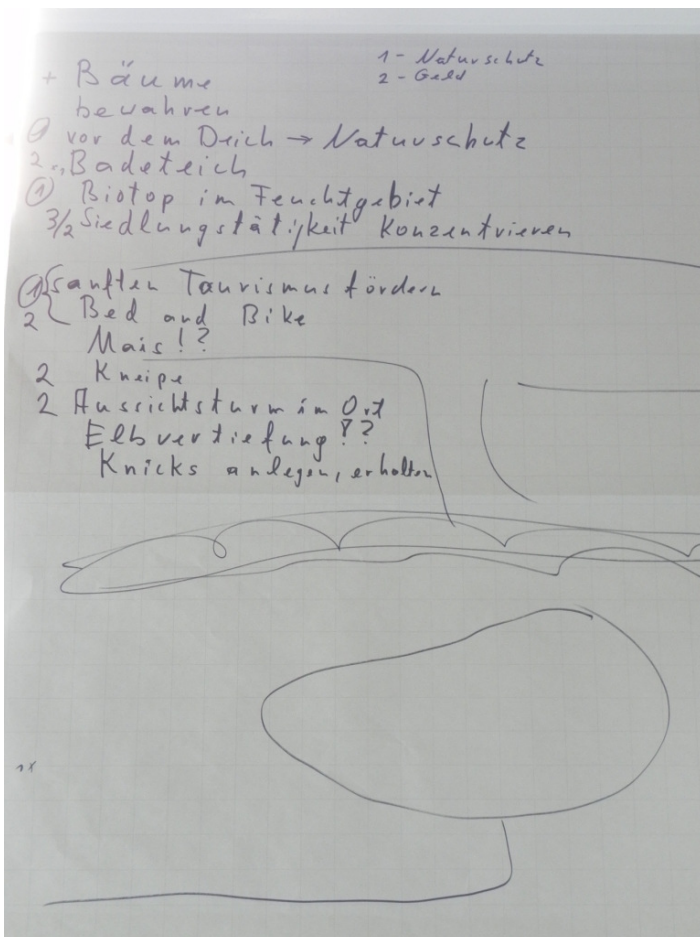 1 - Naturschutz
2 - Geld
+ Bäume
bewahren
① vor dem Deich → Naturschutz
2 Badeteich
① Biotop im Feuchtgebiet
3/2 Siedlungstätigkeit konzentrieren
① Sanften Taurismus fördern
2 Bed and Bike
Mais!?
2 Kneipe
2 Aussichtsturm im Ort
Elbvertiefung!??
Knicks anlegen, erhalten
1x